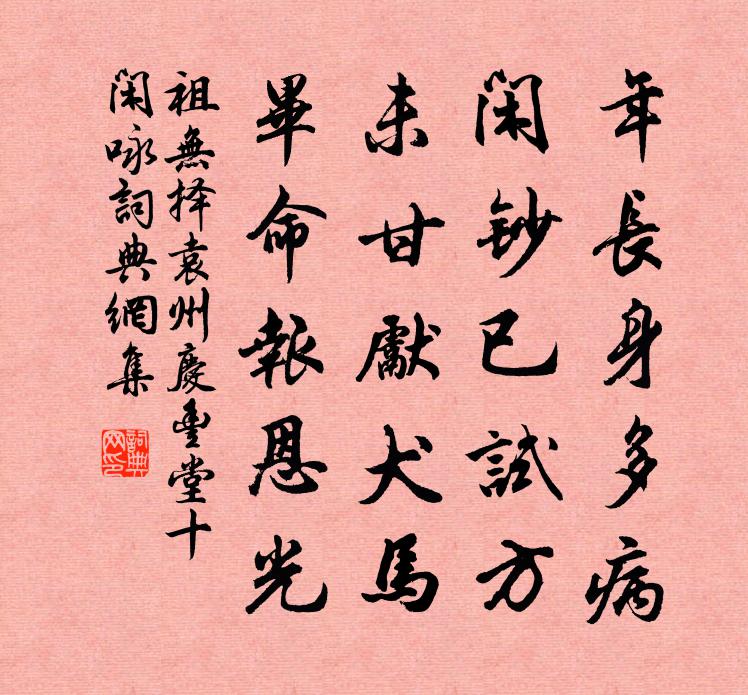 年長身多病
閑鈔已試方
未甘獻犬馬
畢命報恩光
祖無择袁州慶豊堂十
閑咏詞典網集
詞典網印